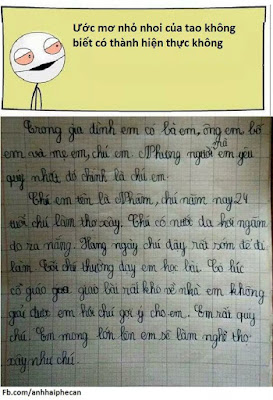 Ước mơ nhỏ nhoi của tao không
biết có thành hiện thực không
Trong gia đình em có bà em, ông em bố
em và mẹ em, chú em. Nhưng người mà em yêu
quý nhất đó chính là chú em.
Chú em tên là Nham, chú năm nay 24
tuổi chú làm thợ xây. Chú có nước da hơi ngăm
do ra nắng. Hàng ngày chú dậy rất sớm để đi
làm. Tối chú thường dạy em học bài. Có lúc
cô giáo giao bài rất khó về nhà em không
giải được em hỏi chú gợi ý cho em. Em rất quý
chú. Em mong lớn lên em sẽ làm nghề thợ
xây như chú.
Fb.com/anhhaiphecan